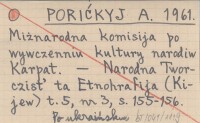 PORIĆKYJ A. 1961.
Miżnarodna komisija po
wywczenniu kultury narodiw
Karpat. — Narodna Twor-
czist' ta Etnohrafija (Ki-
jew) t. 5, nr 3, s. 155-156.
Po ukraińsku